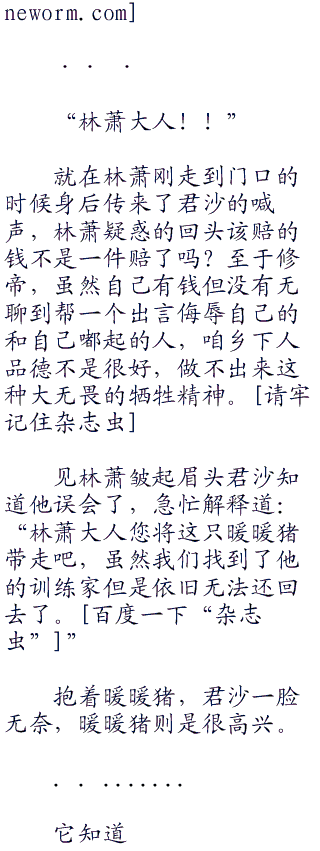 neworm.com]
. . .
“林萧大人！！”
就在林萧刚走到门口的
时候身后传来了君沙的喊
声，林萧疑惑的回头该赔的
钱不是一件赔了吗？至于修
帝，虽然自己有钱但没有无
聊到帮一个出言侮辱自己的
和自己嘟起的人，咱乡下人
品德不是很好，做不出来这
种大无畏的牺牲精神。[请牢
记住杂志虫]
见林萧皱起眉头君沙知
道他误会了，急忙解释道：
“林萧大人您将这只暖暖猪
带走吧，虽然我们找到了他
的训练家但是依旧无法还回
去了。[百度一下“杂志
虫”]”
抱着暖暖猪，君沙一脸
无奈，暖暖猪则是很高兴。
. . .......
它知道